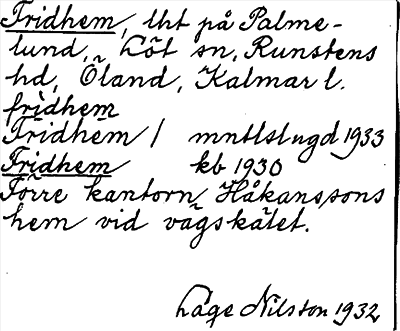 Fridhem, lht på Palme-
lund, Löt sn, Runstens
hd, Öland, Kalmar l.
fridhem
Fridhem / mntlslngd 1933
Fridhem kb 1930
Förre kantorn Håkanssons
hem vid vägskälet.
Låge Nilsson 1932